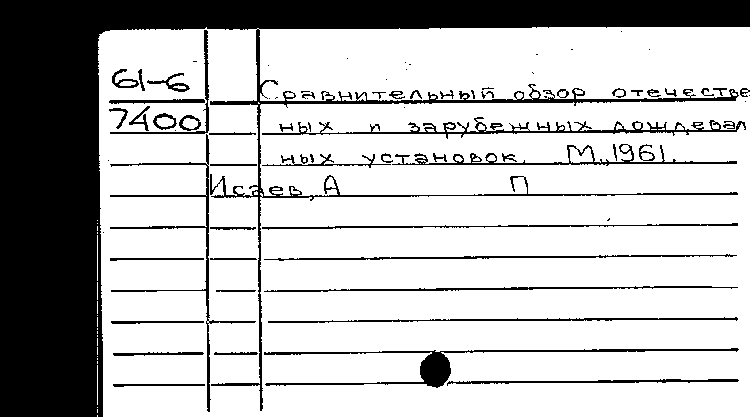 61-6 Сравнительный обзор отечестве
7400 ных и зарубежных дождевал
ных установок. М., 1961.
Исаев, А П